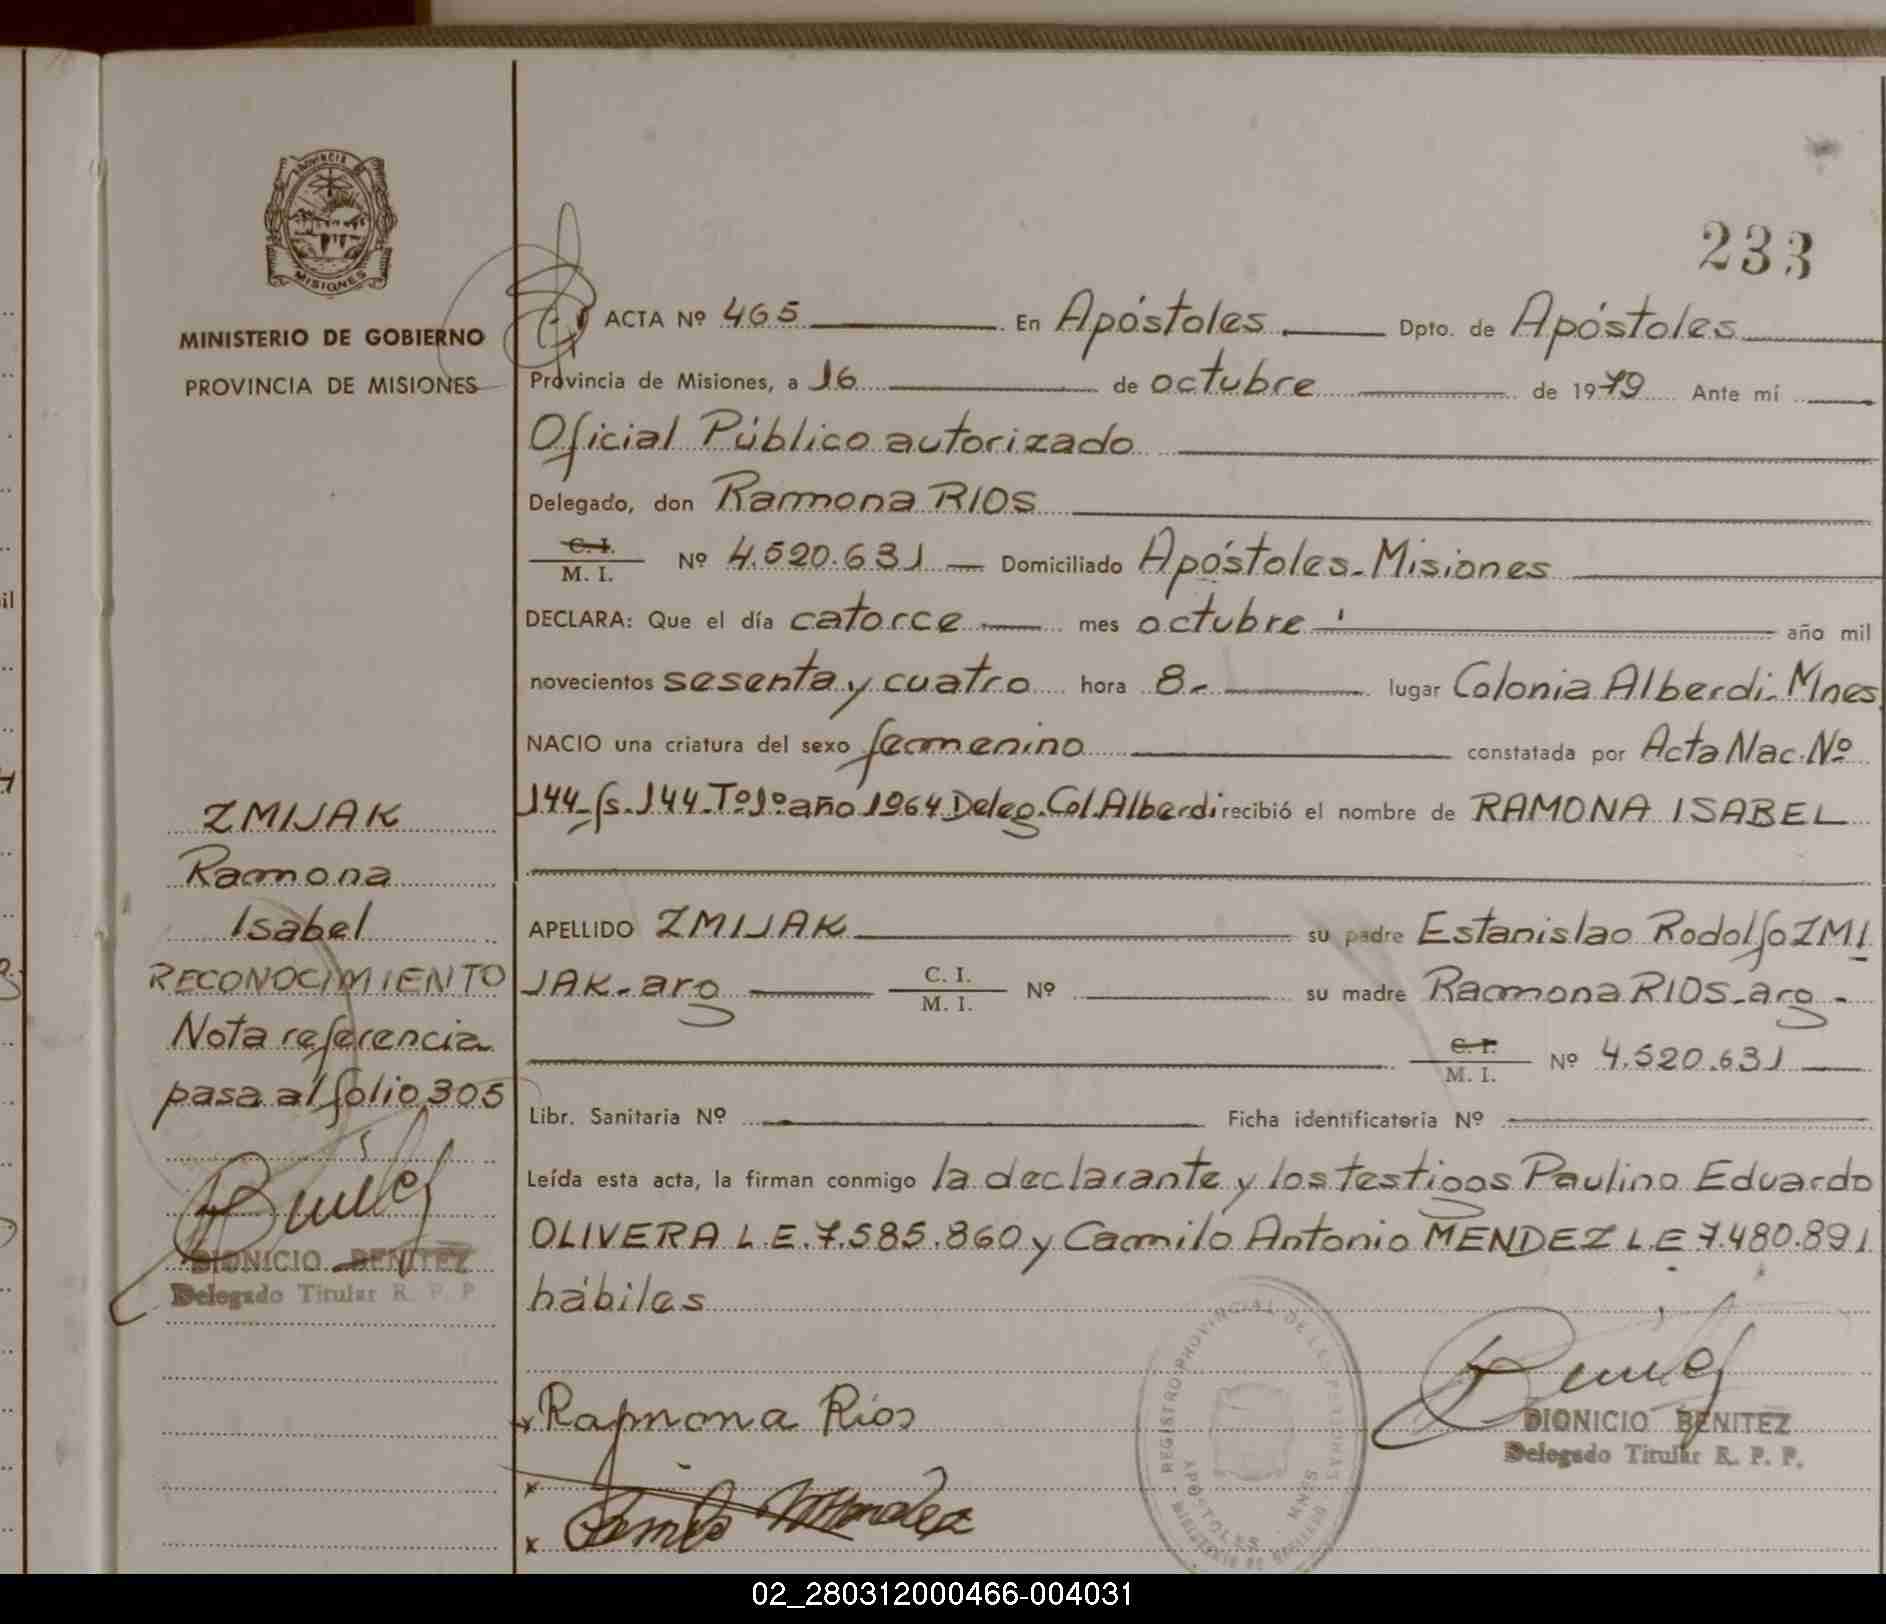 PROVINCIA
MISIONES
MINISTERIO DE GOBIERNO
PROVINCIA DE MISIONES
233
ACTA Nº 465 En Apóstoles Dpto. de Apóstoles
Provincia de Misiones, a 16 de octubre de 1979 Ante mí
Oficial Público autorizado
Delegado, don Ramona RIOS
C. I.
M. I. Nº 4.520.631 Domiciliado Apóstoles-Misiones
DECLARA: Que el día catorce mes octubre año mil
novecientos sesenta y cuatro hora 8.- lugar Colonia Alberdi-Mnes
NACIO una criatura del sexo femenino constatada por Acta Nac. Nº
144-fs.144-Tº1º año 1964 Deleg. Col. Alberdi recibió el nombre de RAMONA ISABEL
APELLIDO ZMIJAK su padre Estanislao Rodolfo ZMI
JAK-arg C. I.
M. I. Nº su madre Ramona RIOS-arg-
C. I.
M. I. Nº 4.520.631
Libr. Sanitaria Nº Ficha identificatoria Nº
Leída esta acta, la firman conmigo la declarante y los testigos Paulino Eduardo
OLIVERA L.E. 7.585.860 y Camilo Antonio MENDEZ L.E 7.480.891
hábiles
ZMIJAK
Ramona
Isabel
RECONOCIMIENTO
Nota referencia
pasa al folio 305
DIONICIO BENITEZ
Delegado Titular R. P. P.
Ramona Ríos
x
x Camilo Mendez
REGISTRO PROVINCIAL DE LAS PERSONAS
APOSTOLES - MNES
MINISTERIO DE GOBIERNO
DIONICIO BENITEZ
Delegado Titular R. P. P.
02_280312000466-004031